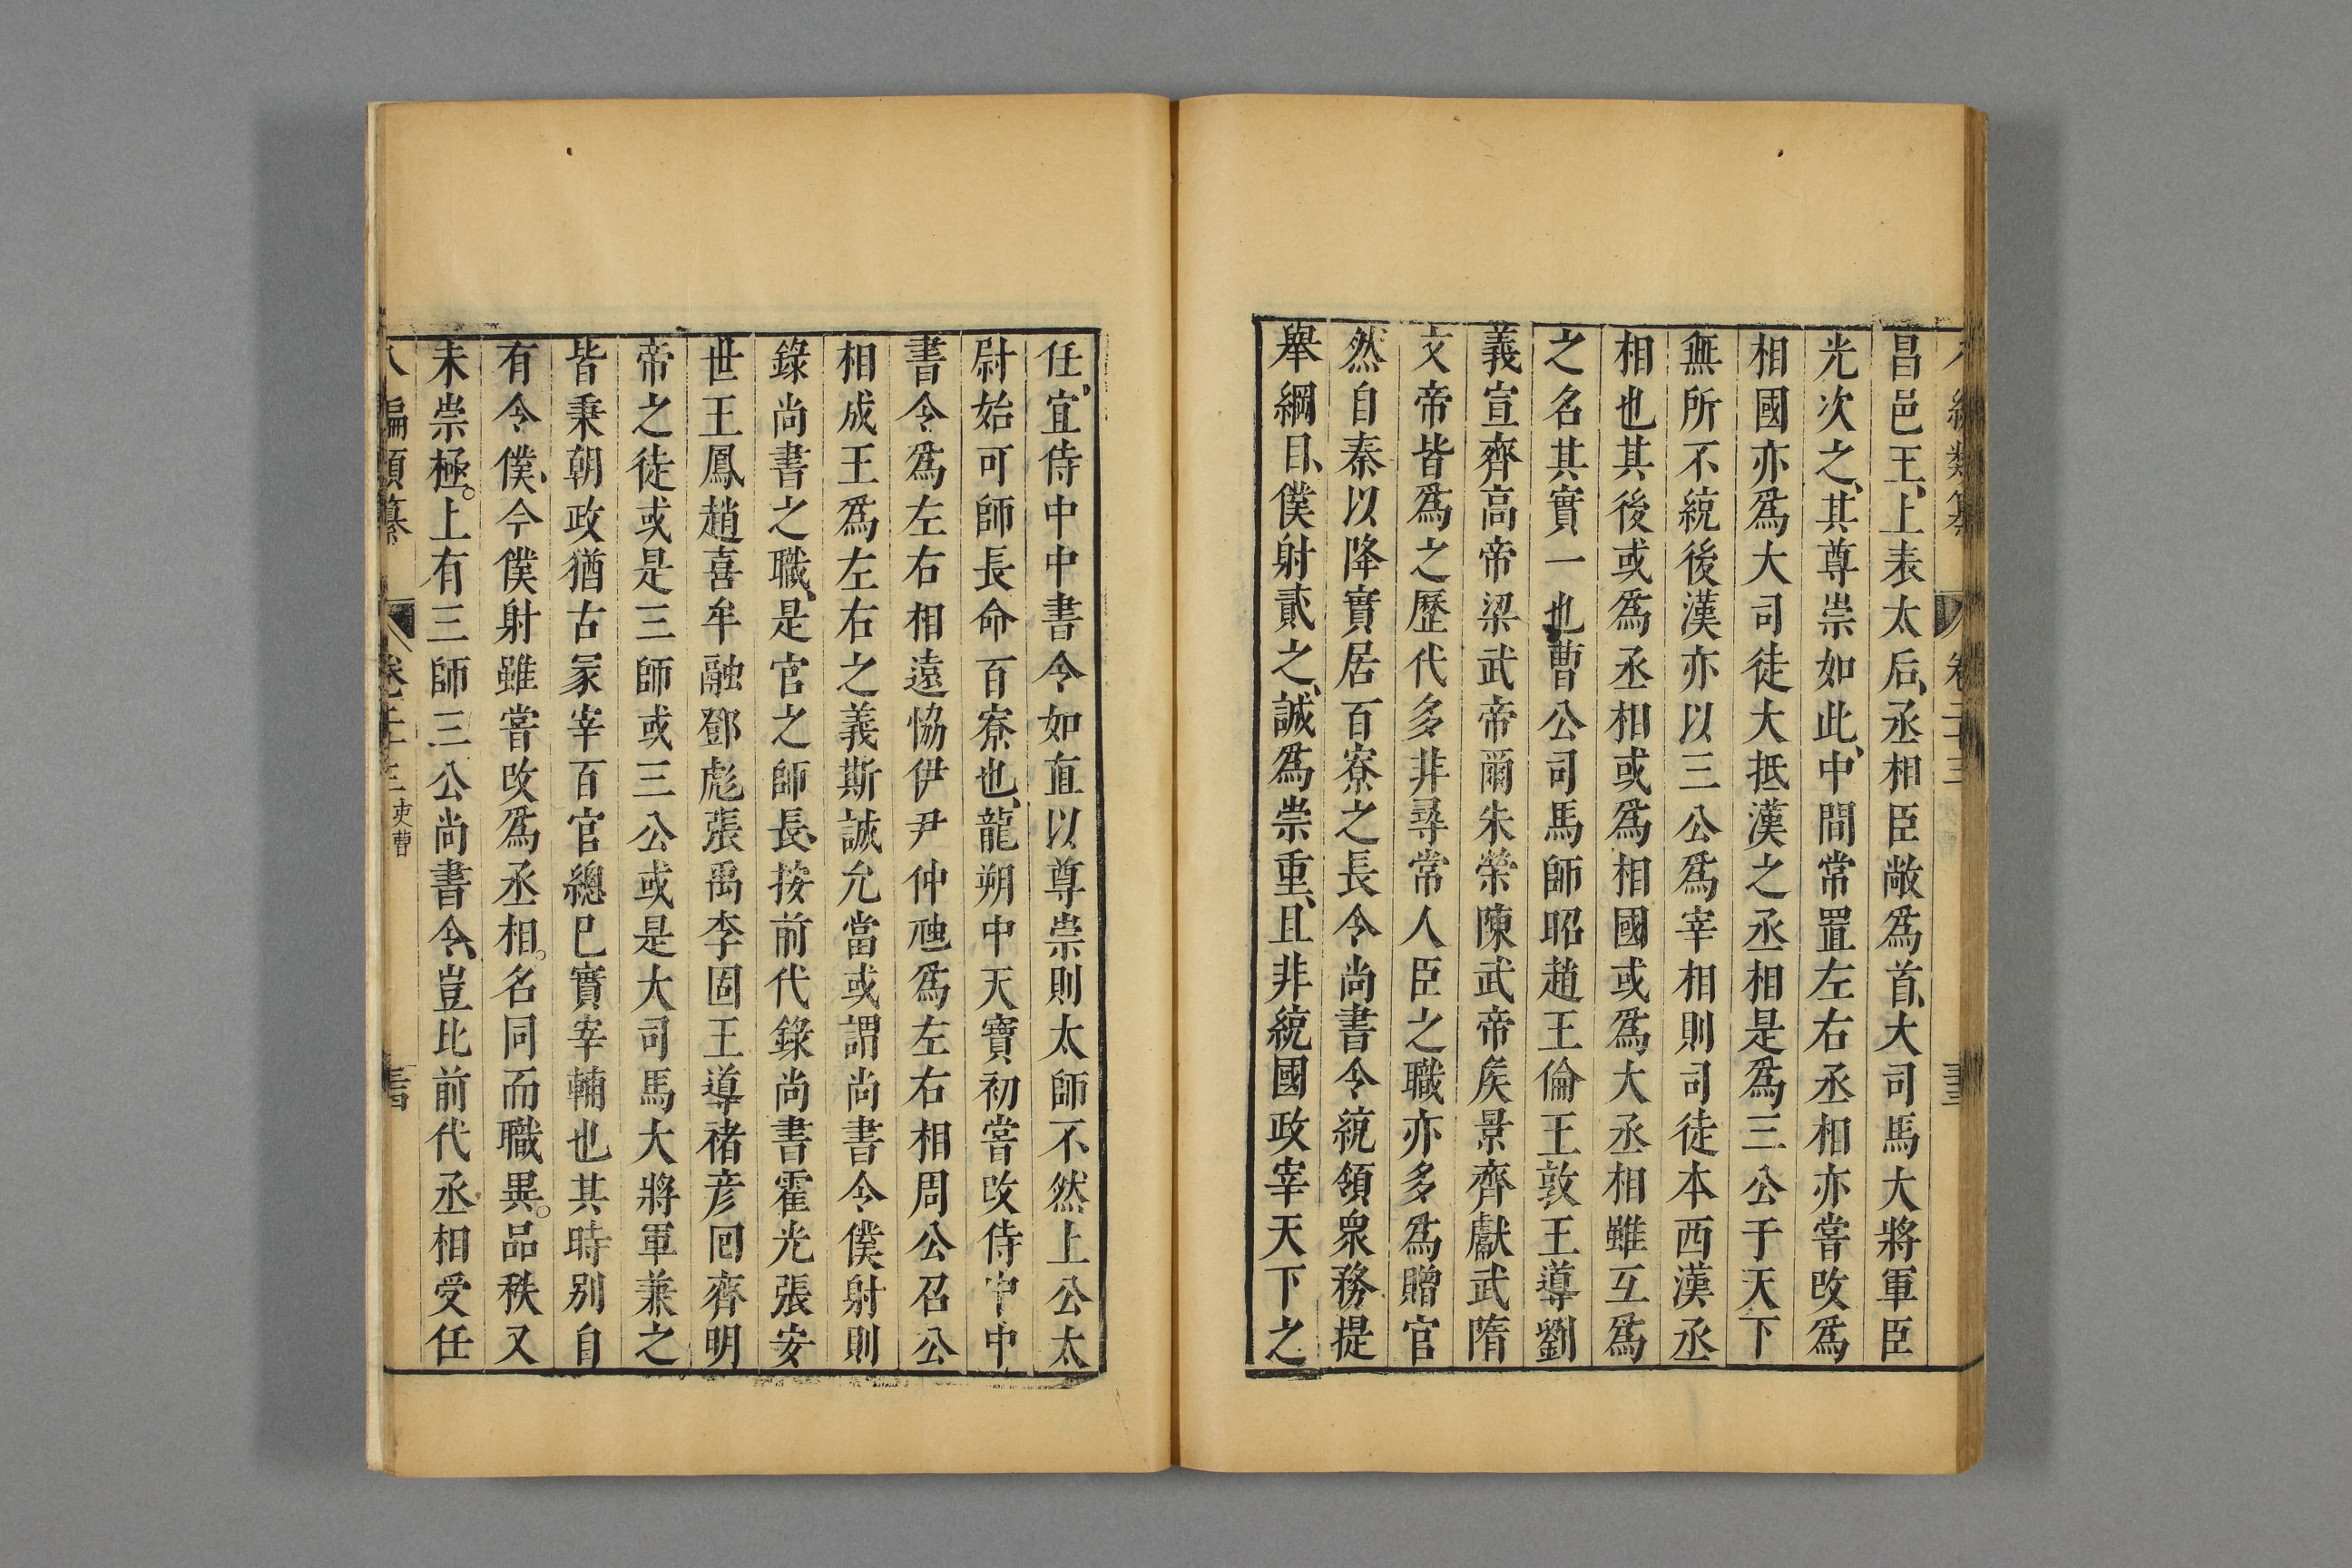 八編類纂 卷二十三
昌邑王、上表太后、丞相臣敞爲首、大司馬大將軍臣
光次之、其尊崇如此、中間常置左右丞相亦嘗改爲
相國亦爲大司徒大抵漢之丞相是爲三公于天下
無所不統後漢亦以三公爲宰相則司徒本西漢丞
相也其後或爲丞相或爲相國或爲大丞相雖互爲
之名其實一也曹公司馬師昭趙王倫王敦王導劉
義宣齊高帝梁武帝爾朱榮陳武帝矦景齊獻武隋
文帝皆爲之歷代多非尋常人臣之職亦多爲贈官
然自秦以降實居百寮之長今尚書令統領衆務提
舉綱目、僕射貳之、誠爲崇重、且非統國政宰天下之
任、宜侍中中書令如直以尊崇則太師不然上公太
尉始可師長命百寮也、龍朔中天寶初嘗改侍中中
書令爲左右相遠協伊尹仲虺爲左右相周公召公
相成王爲左右之義斯誠允當或謂尚書令僕射則
錄尚書之職、是官之師長、按前代錄尚書霍光張安
世王鳳趙喜牟融鄧彪張禹李固王導褚彦回齊明
帝之徒或是三師或三公或是大司馬大將軍兼之
皆秉朝政猶古冢宰百官總巳實宰輔也其時别自
有令僕、今僕射雖嘗改爲丞相。名同而職異。品秩又
未崇極。上有三師三公尚書令、豈比前代丞相受任
八編類纂 卷二十三 吏曹